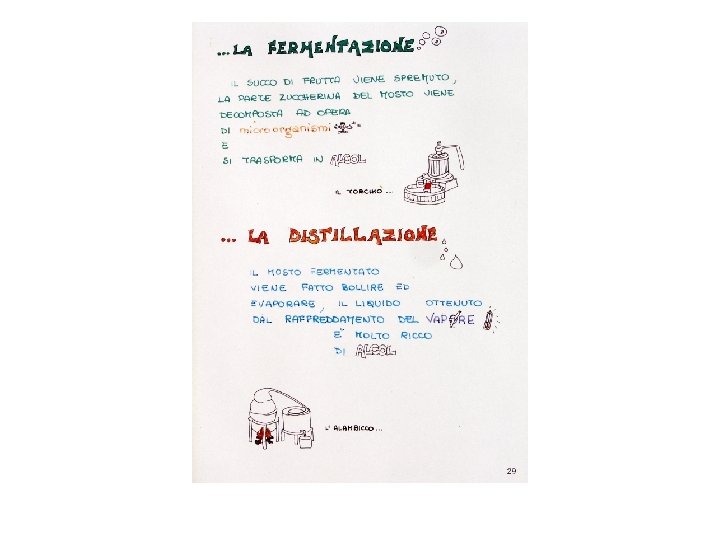 ...LA FERMENTAZIONE
IL SUCCO DI FRUTTA VIENE SPREMUTO,
LA PARTE ZUCCHERINA DEL MOSTO VIENE
DECOMPOSTA AD OPERA
DI microorganismi
E
SI TRASFORMA IN ALCOL
IL TORCHIO...
... LA DISTILLAZIONE
IL MOSTO FERMENTATO
VIENE FATTO BOLLIRE ED
EVAPORARE, IL LIQUIDO OTTENUTO
DAL RAFFREDDAMENTO DEL VAPORE
E' MOLTO RICCO
DI ALCOL
L'ALAMBICCO...
29